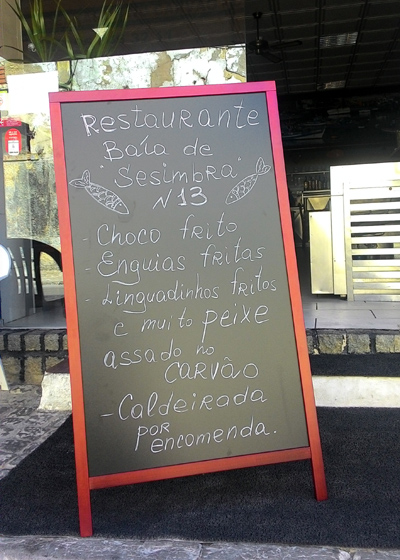 Restaurante
Baía de
"Sesimbra"
N13
- Choco frito
- Enguias fritas
- Linguadinhos fritos
e muito peixe
assado no
CARVÃO
- Caldeirada
por
encomenda.